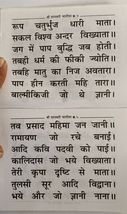 श्री सरस्वती चालीसा
रूप चतुर्भुज धारी माता।
सकल विश्व अन्दर विख्याता॥
जग में पाप बुद्धि जब होती।
तबही धर्म की फीकी ज्योति॥
तबहि मातु का निज अवतारा।
पाप हीन करती महि तारा॥
बाल्मीकिजी थे जो ज्ञानी।
श्री सरस्वती चालीसा
तव प्रसाद महिमा जन जानी॥
रामायण जो रचे बनाई।
आदि कवि पदवी को पाई॥
कालिदास जो भये विख्याता।
तेरी कृपा दृष्टि से माता॥
तुलसी सूर आदि विद्वाना।
भये और जो ज्ञानी नाना॥